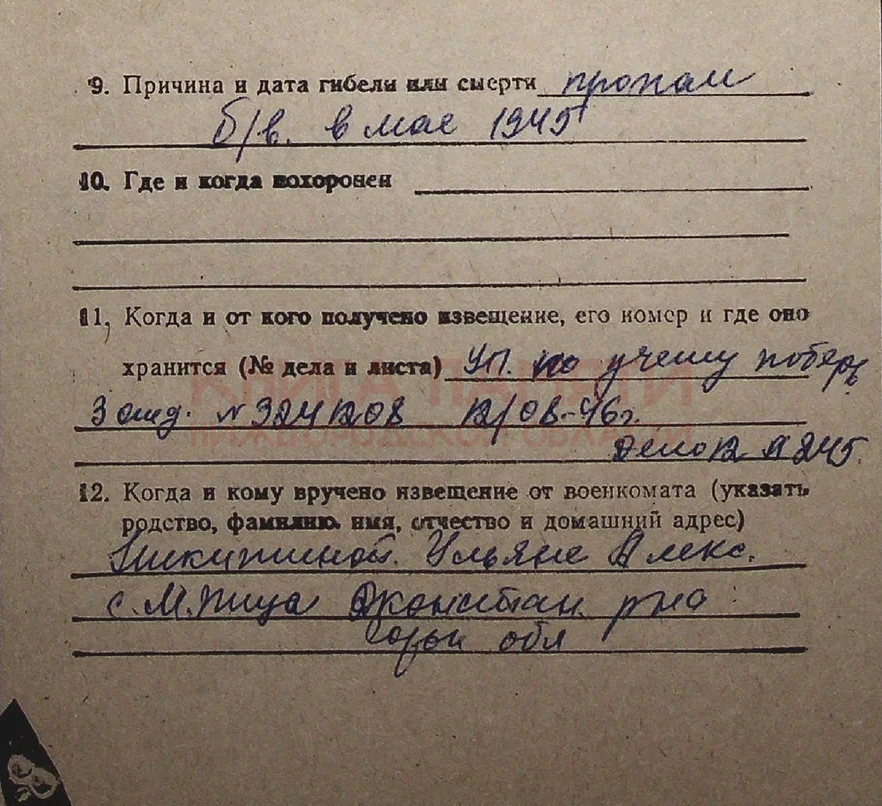 9. Причина и дата гибели или смерти пропал
б/в. в мае 1945
10. Где и когда похоронен
11. Когда и от кого получено извещение, его номер и где оно
хранится (№ дела и листа) Уп. по учету потерь
3 отд. № 324208 12/08-46г.
КНИГА ПАМЯТИ
НИЖЕГОРОДСКОЙ ОБЛАСТИ
Дело 12 л 245.
12. Когда и кому вручено извещение от военкомата (указать
родство, фамилию, имя, отчество и домашний адрес)
Никитиной Ульяне Алекс.
с. М.Пица Дконстан. р-на
Горьк обл